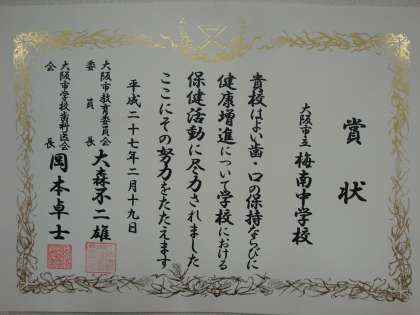 賞状
大阪市立 梅南中学校
貴校はよい歯・口の保持ならびに
健康増進について学校における
保健活動に尽力されました
ここにその努力をたたえます
平成二十七年二月十九日
大阪市教育委員会
委員長 大森不二雄
大阪市学校歯科医会
会長 岡本卓士